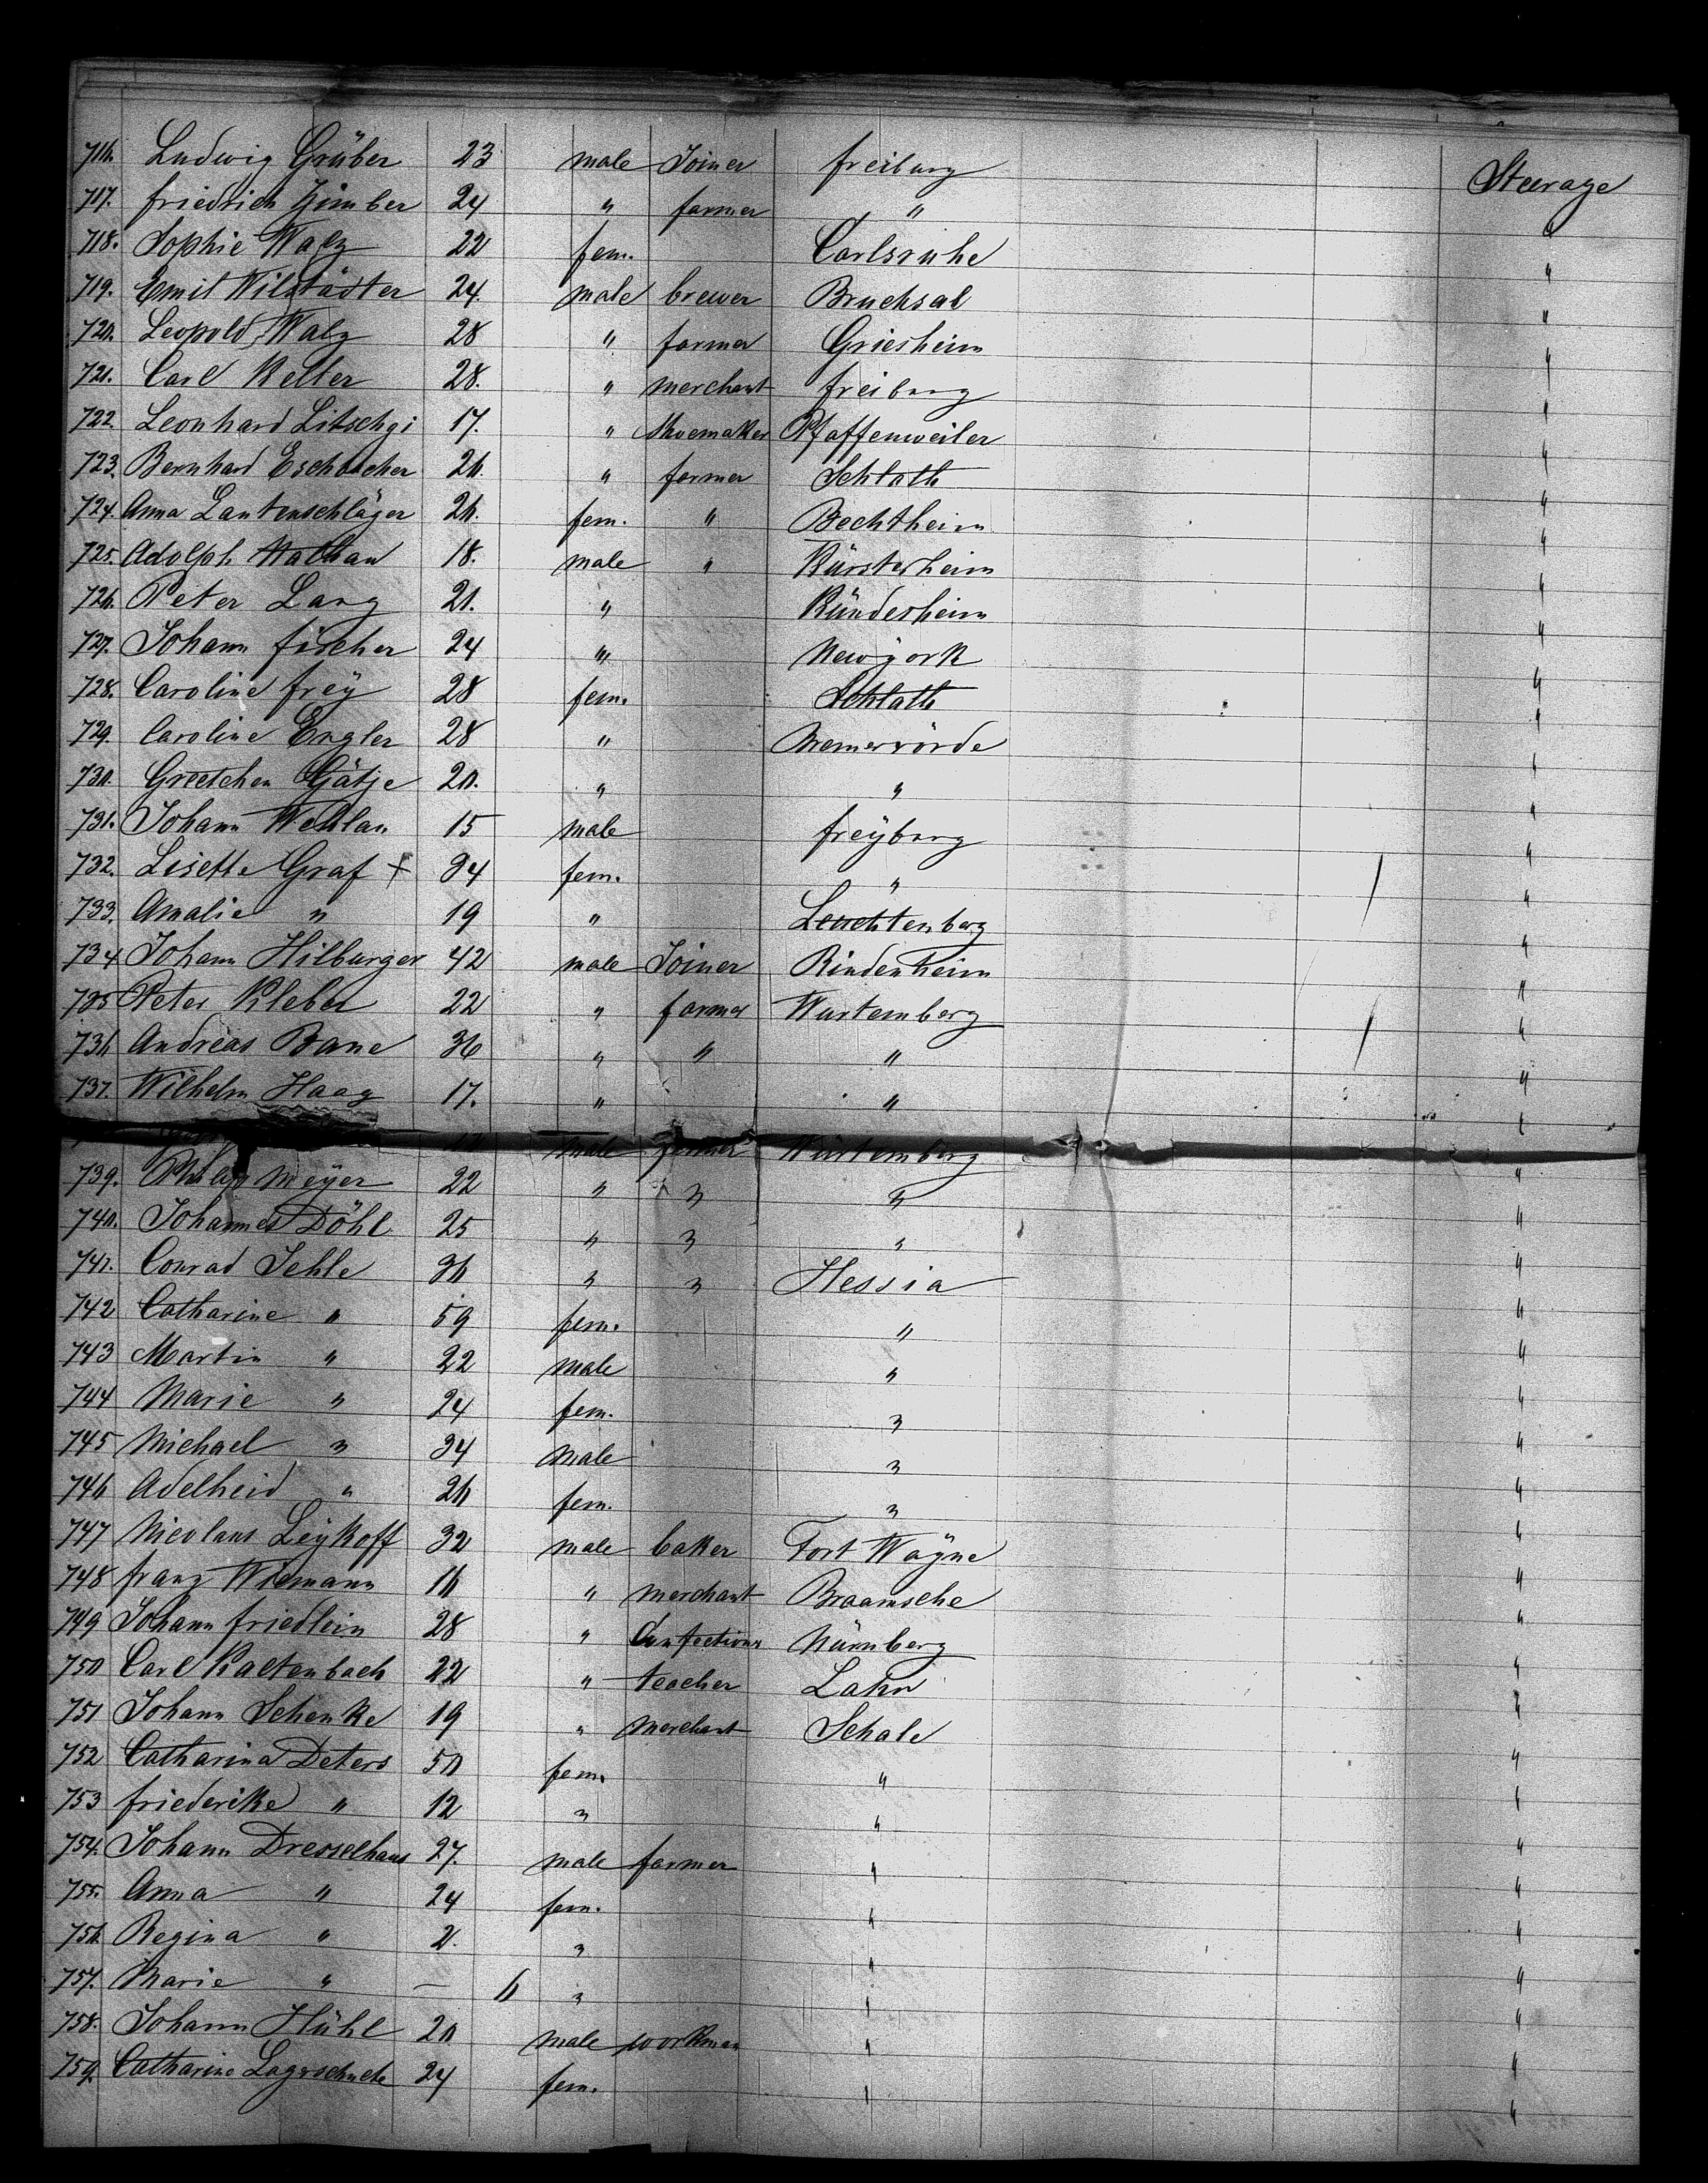 716. Ludwig Gruber 23 male Joiner freiburg Steerage
717. friedrich Zimber 24 " farmer " "
718. Sophie Walz 22 fem. Carlsruhe "
719. Emil Wilstädter 24. male brewer Bruchsal "
720. Leopold Walz 28 " farmer Griesheim "
721. Carl Keller 28. " merchant freiburg "
722. Leonhard Litschgi 17. " Shoemaker Pfaffenweiler "
723. Bernhard Eschbacher 26. " farmer Schlatt "
724. Anna Lautenschläger 26. fem. " Bechtheim "
725. Adolph Nathan 18. male " "
726. Peter Lang 21. " Rüdesheim "
727. Johann fischer 24 " Newyork "
728. Caroline frey 28 fem. Schlatt "
729. Caroline Engler 28 " Bremervörde "
730. Greetchen Gätje 20. " " "
731. Johann Wehlan 15 male freyburg "
732. Lisette Graf + 34 fem. " "
733. Amalie " 19 " Leuchtenberg "
734 Johann Hilburger 42 male Joiner Rindenheim "
735 Peter Kleber 22 " farmer Wurtemberg "
736 Andreas Bane 36 " " " "
737. Wilhelm Haag 17. " " "
male farmer Würtemberg
739. Philip Meyer 22 " " " "
740. Johannes Döhl 25 " " " "
741. Conrad Jehle 36 " " Hessia "
742 Catharine " 59 fem. " "
743 Martin " 22 male " "
744 Marie " 24 fem. " "
745 Michael " 34 male " "
746 Adelheid " 26 fem. " "
747 Nicolaus Leykoff 32 male baker Fort Wayne "
748 franz Wiemann 16 " merchant Braamsche "
749 Johann friedlein 28 " Confectioner Nürnberg "
750 Carl Kaltenbach 22 " teacher Lahr "
751 Johann Schenke 19 " merchant Schale "
752 Catharina Deters 50 fem. " "
753 friederike " 12 " " "
754. Johann Dresselhaus 27. male farmer " "
755. Anna " 24 fem. " "
756. Regina " 2. " " "
757. Marie " — 6 " " "
758. Johann Hühl 20 male workman " "
759. Catharine 24 fem. " "